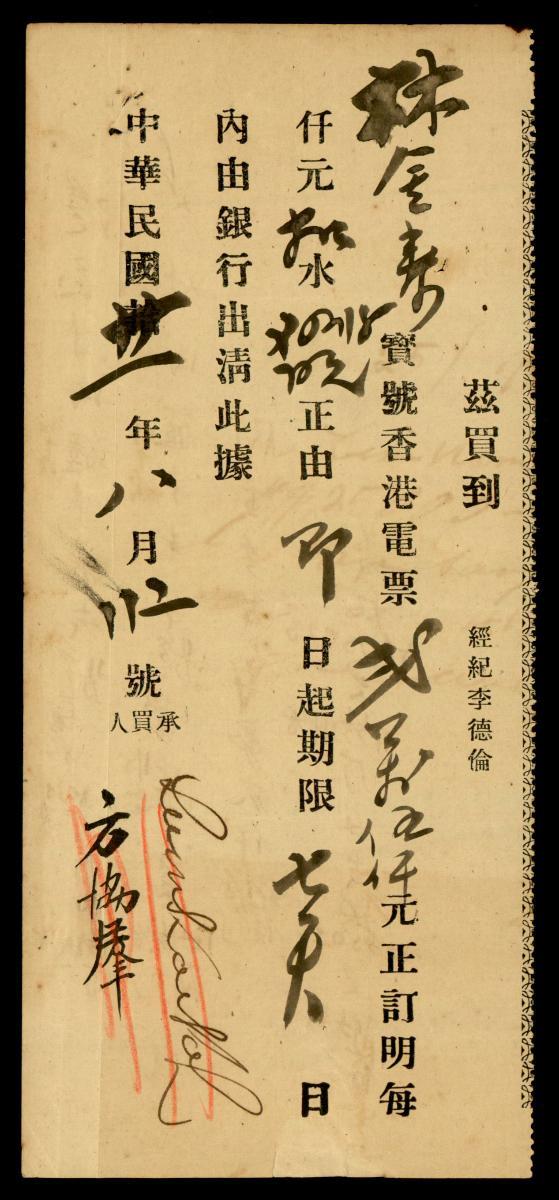 茲買到
經紀李德倫
林金壽寶號香港電票弍萬伍仟元正訂明每
仟元 水 正由即日起期限七天日
內由銀行出清此據
中華民國廿一年八月 號
承買人
方協羣